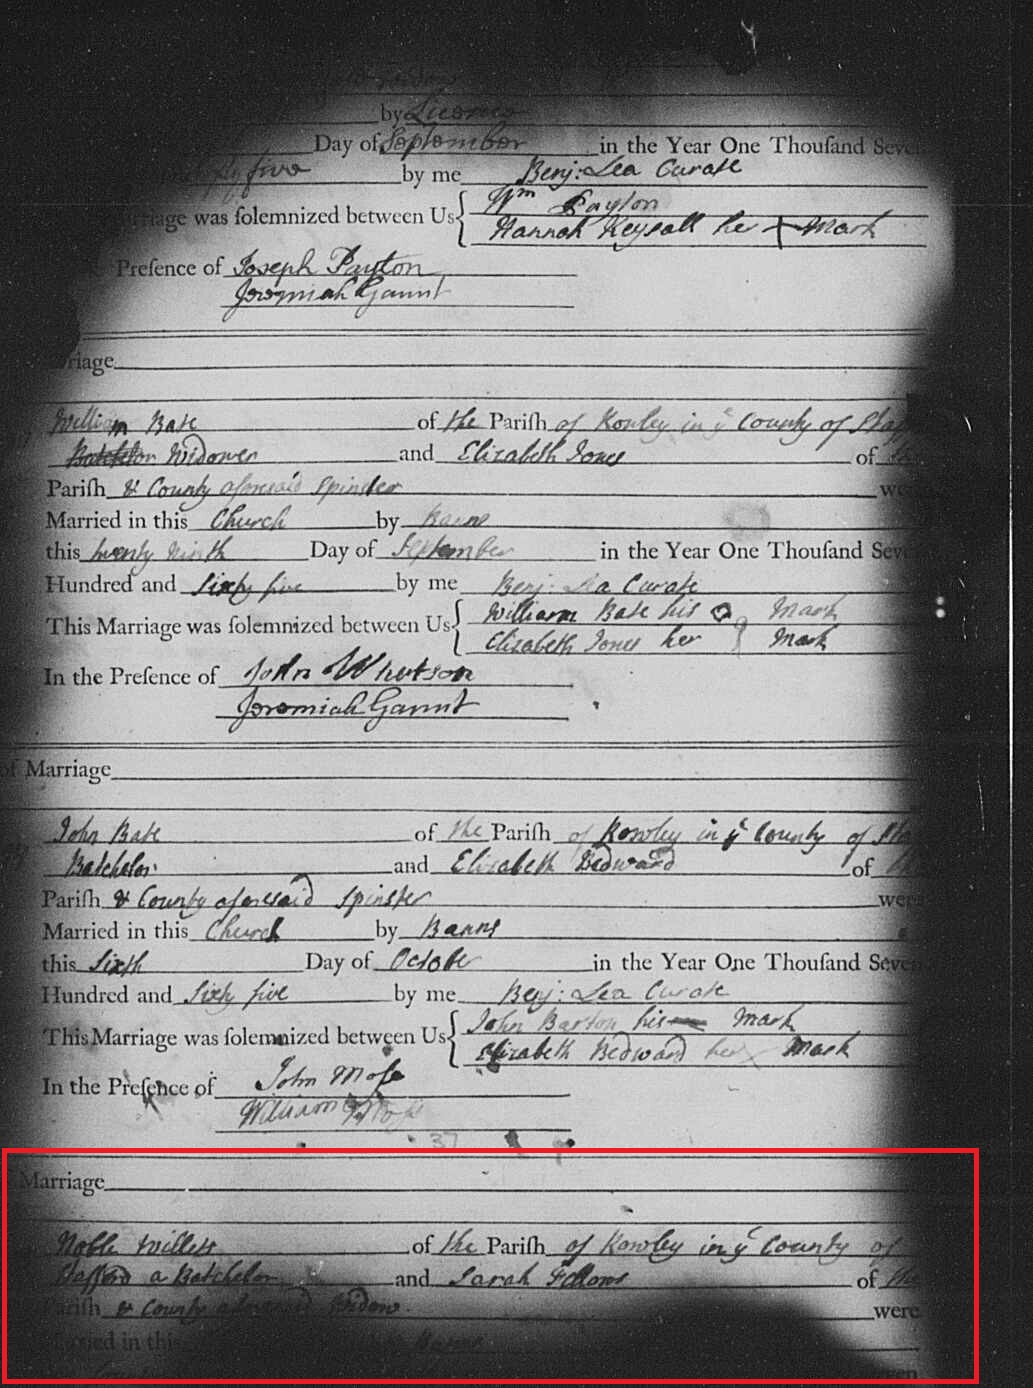 by Licence
Day of September in the Year One Thouſand Seven
five by me Benj: Lea Curate
Marriage was ſolemnized between Us { Wm Payton
Hannah Keysall her X Mark
Preſence of Joseph Payton
Jeremiah Gaunt
Marriage
William Bate of the Parish of Rowley in ye County of Staf
Batchelor Widower and Elizabeth Jones of
Parish & County aforesaid Spinster were
Married in this Church by Banns
this twenty Ninth Day of September in the Year One Thouſand Seve
Hundred and Sixty five by me Benj: Lea Curate
This Marriage was ſolemnized between Us { William Bate his O Mark
Elizabeth Jones her Mark
In the Preſence of John Whetson
Jeremiah Gaunt
of Marriage
John Bate of the Parish of Rowley in ye County of Sta
Batchelor and Elizabeth Bedward of
Parish & County aforesaid Spinster were
Married in this Church by Banns
this Sixth Day of October in the Year One Thouſand Seven
Hundred and Sixty five by me Benj: Lea Curate
This Marriage was ſolemnized between Us { John Barton his — Mark
Elizabeth Bedward her X Mark
In the Preſence of John Moſs
William Moſs
37
Marriage
Noble Willets of the Parish of Rowley in ye County of
Stafford a Batchelor and Sarah Fellows of the
Parish & County aforesaid Widow were
Married in this Banns